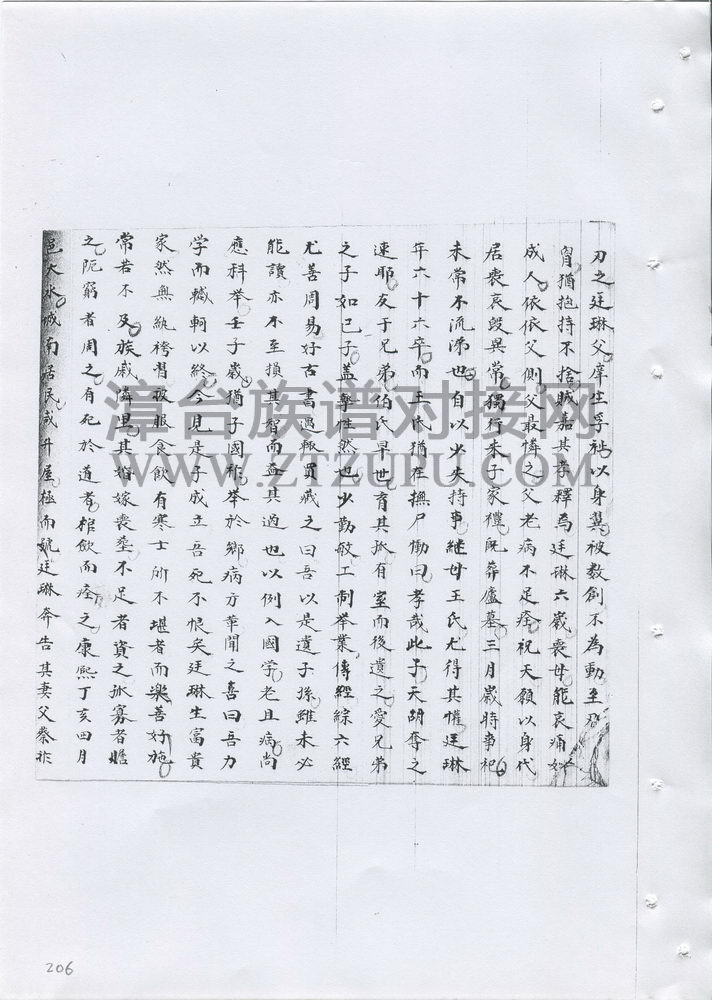 刃之廷琳父庠生孚祉以身翼被数創不為動至
胷猶抱持不捨賊嘉其孝釋焉廷琳六歲喪母能哀痛如
成人依依父側父最憐之父老病不足痊祝天願以身代
居喪哀毀異常獨行朱子家禮既葬廬墓三月歲時事祀
未常不流涕也自以少失持事継母王氏尤得其懽廷琳
年六十六卒而王氏猶在撫尸慟曰孝哉此子天胡奪之
速耶友于兄弟伯氏早世育其孤有室而後遺之愛兄弟
之子如己子盖摯性然也少勤敏工制举業傳經綜六經
尤善周易好古書遇輙買蔵之曰吾以是遺子孫雖未必
能讀亦不至損其智而益其過也以例入國学老且病尚
應科举壬子歲猶子國祚举於鄉病方革聞之喜曰吾力
学而轗軻以終今見是子成立吾死不恨矣廷琳生富貴
家然無紈袴習被服食飲有寒士所不堪者而樂善好施
常若不及族戚隣里其婚嫁喪塟不足者資之孤寡者贍
之阨窮者周之有死於道者棺飲而痊之康熙丁亥四月
邑大水城南居民或升屋極而號廷琳奔告其妻父蔡祚
漳台族谱对接网
WWW.ZTZUPU.COM
206